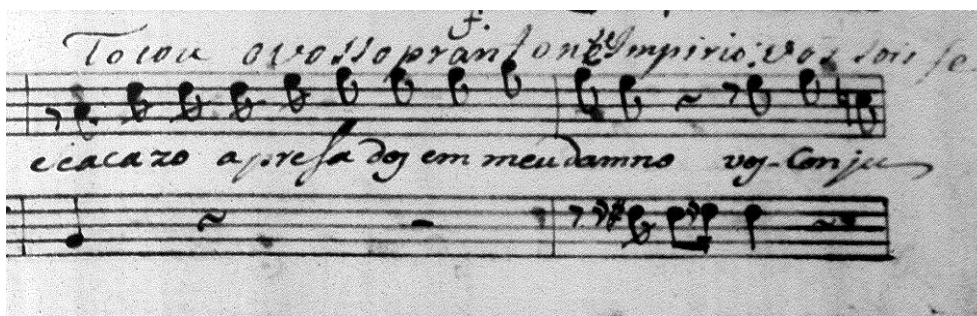 Tocou o vosso pranto no Impirio: vos sois fe
e cacazo apresados em meu damno vos-Conju